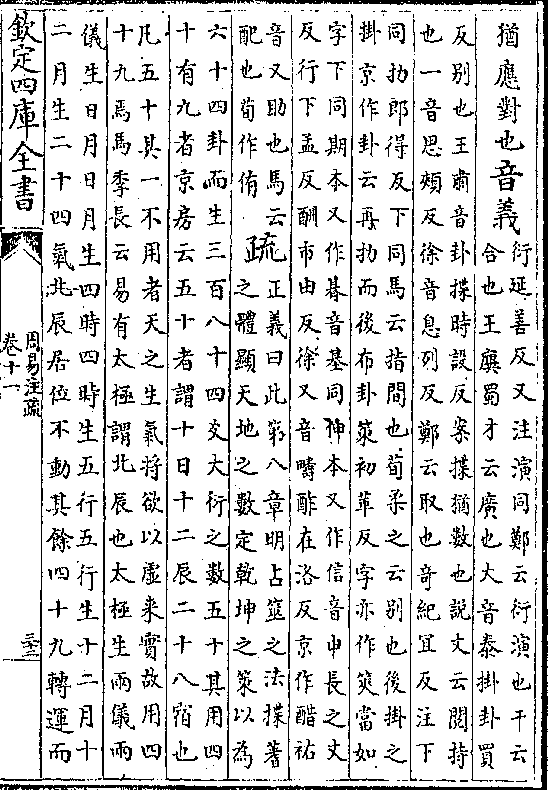 猶應對也音義衍延善反又注演同鄭云衍演也干云
合也王廙蜀才云廣也大音泰掛卦買
反别也王肅音卦揲時設反案揲猶數也説文云閱持
也一音思頰反徐音息列反鄭云取也奇紀宜反注下
同扐郎得反下同馬云指間也荀柔之云别也後掛之
掛京作卦云再扐而後布卦䇿初革反字亦作筴當如
字下同期本又作朞音基同伸本又作信音申長之丈
反行下孟反酬市由反徐又音疇酢在洛反京作醋祐
音又助也馬云
配也荀作侑疏正義曰此第八章明占筮之法揲蓍
之體顯天地之數定乾坤之策以為
六十四卦而生三百八十四爻大衍之數五十其用四
十有九者京房云五十者謂十日十二辰二十八宿也
凡五十其一不用者天之生氣將欲以虚来實故用四
十九焉馬季長云易有太極謂北辰也太極生兩儀兩
儀生日月日月生四時四時生五行五行生十二月十
二月生二十四氣北辰居位不動其餘四十九轉運而
欽定四庫全書
周易注疏
卷十一
三十三